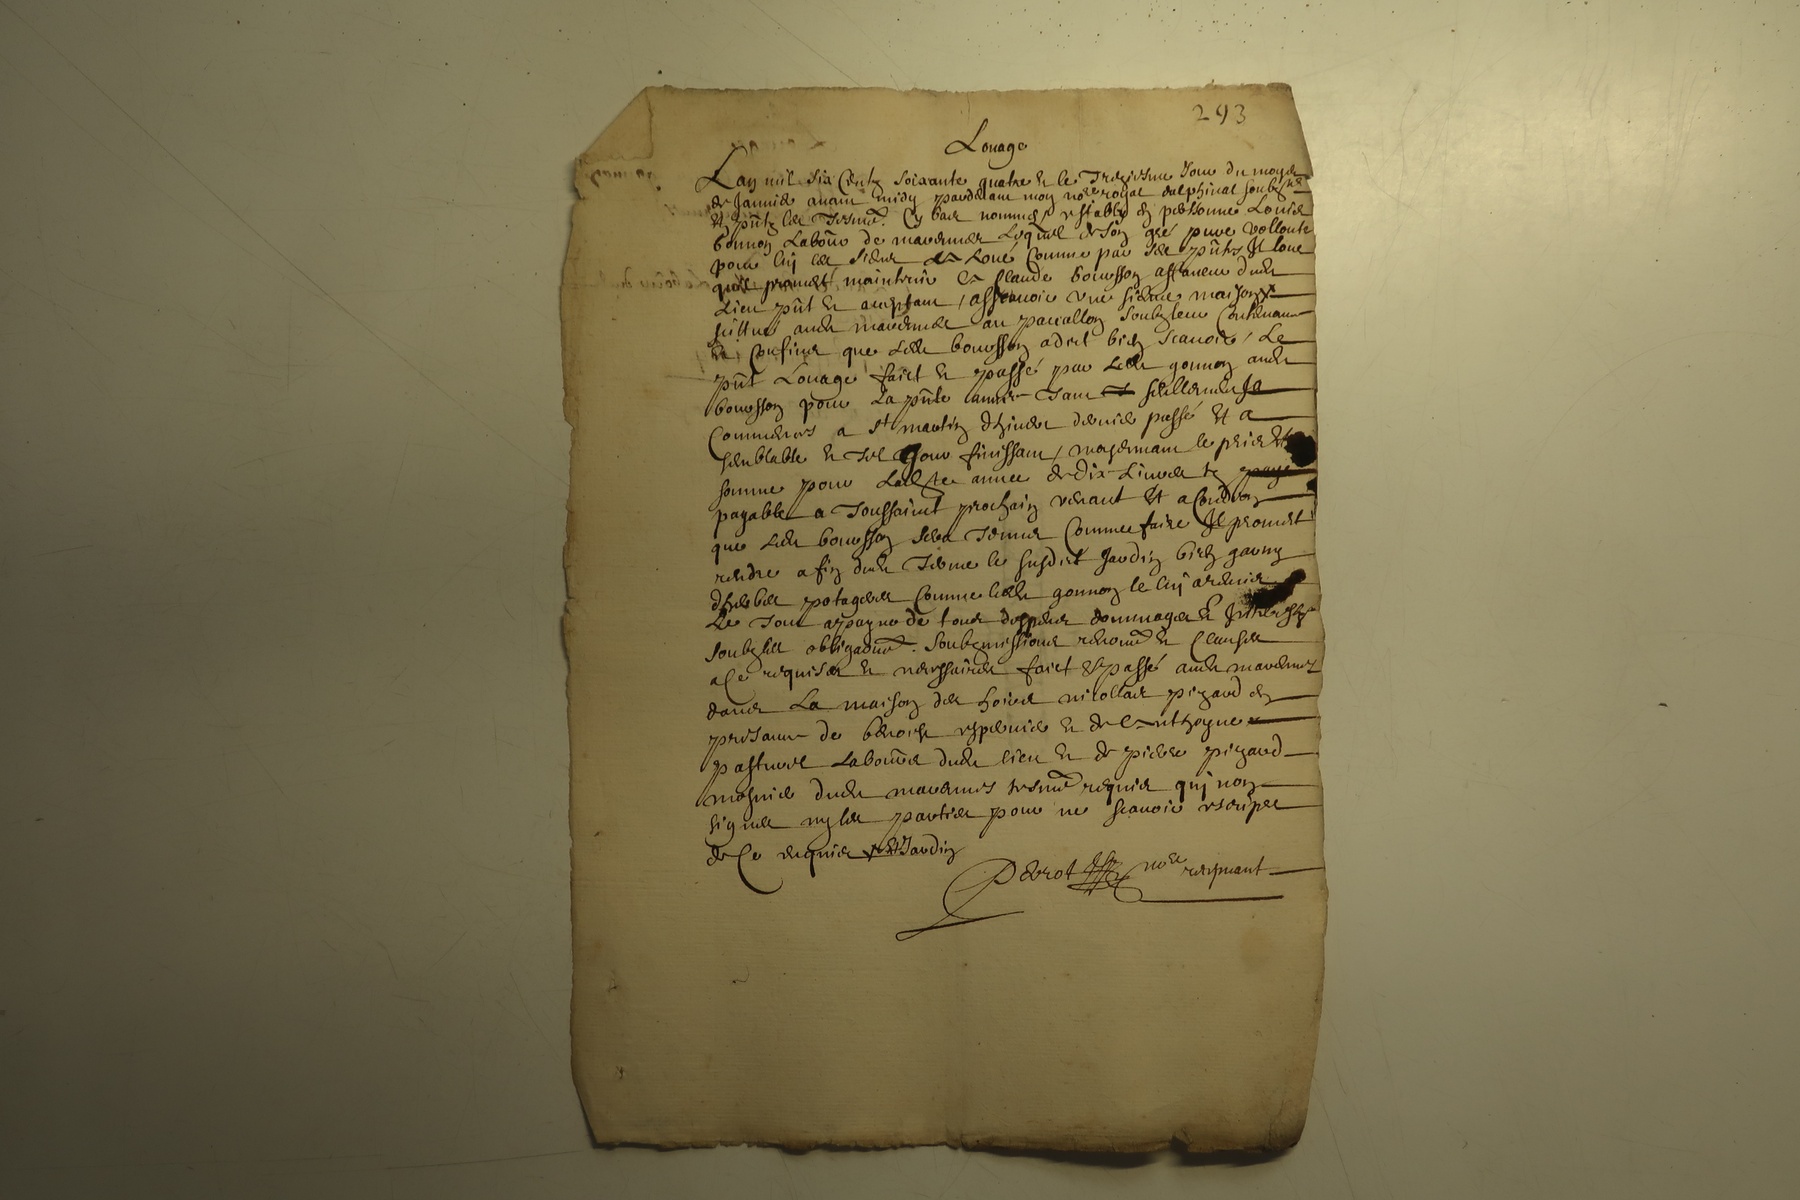 293
Louage
Lan mil six Centz soixante quatre & le Treziesme Jour du moys
de Janvier avant midy pardevant moy nore royal delphinal soubzne
& pntz les Tesmz Cy bas nommes estably en personne Louis
gonnon Labour de marennes Lequel de son gré pure vollonte
pour luy les siens a Loué Comme par ses pntes Il loue
promect maintenir a Claude bouesson dudt
Lieu pnt & acceptant / asscavoir une sienne maison
scittue audt marennes au soubz leur Contenant
& Confins que ledt bouesson a dict bien scavoir / Le
pnt Louage faict & passé par ledt gonnon audt
bouesson pour La pnte annee Tant seullement Ja
Commence a st martin dhiver dernier passé Et a
semblable & Tel Jour finissant / moyennant le prix &
somme pour Ladte annee de dix Livres tz
payable a Toussainct prochain venant Et a Condion
que ledt bouesson sera Tenu Comme faire Il promect
rendre a fin dudt Terme le susdict Jardin bien garny
dherbes potageres Comme ledt gonnon le luy a remis
Le Tout a payne de tous despens dommages & Interestz
soubz les obligaons soubzmissions renonons & Clauses
a Ce requises & necessaires faict & passé audt marennes
dans La maison des hoirs nicollas pizard en
presance de benoist & de Anthoyne
pastural Labours dudt lieu & de pierre pizard
mosnier dudt marennes tesmz requis qui non
signes ny les parties pour ne scavoir escripre
de Ce enquis & Jardin
Perrot nore recepvant